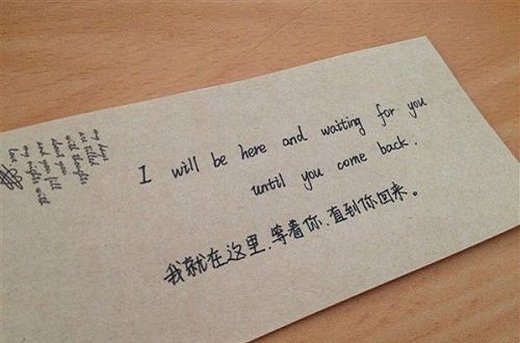 I will be here and waiting for you
until you come back.
我就在这里.等着你.直到你回来。
my days
are filled
with thoughts
about you
and you fill
my nights with
love